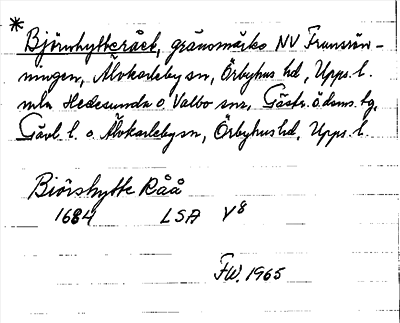 * Björnhytterået, gränsmärke NV Fransrön-
ningen, Älvkarleby sn, Örbyhus hd, Upps. l.
mln Hedesunda o. Valbo snr, Gästr. ö. dsms. tg,
Gävl. l. o. Älvkarleby sn, Örbyhus hd, Upps. l.
Biörshytte Råå
1684 LSA Y8
FW. 1965